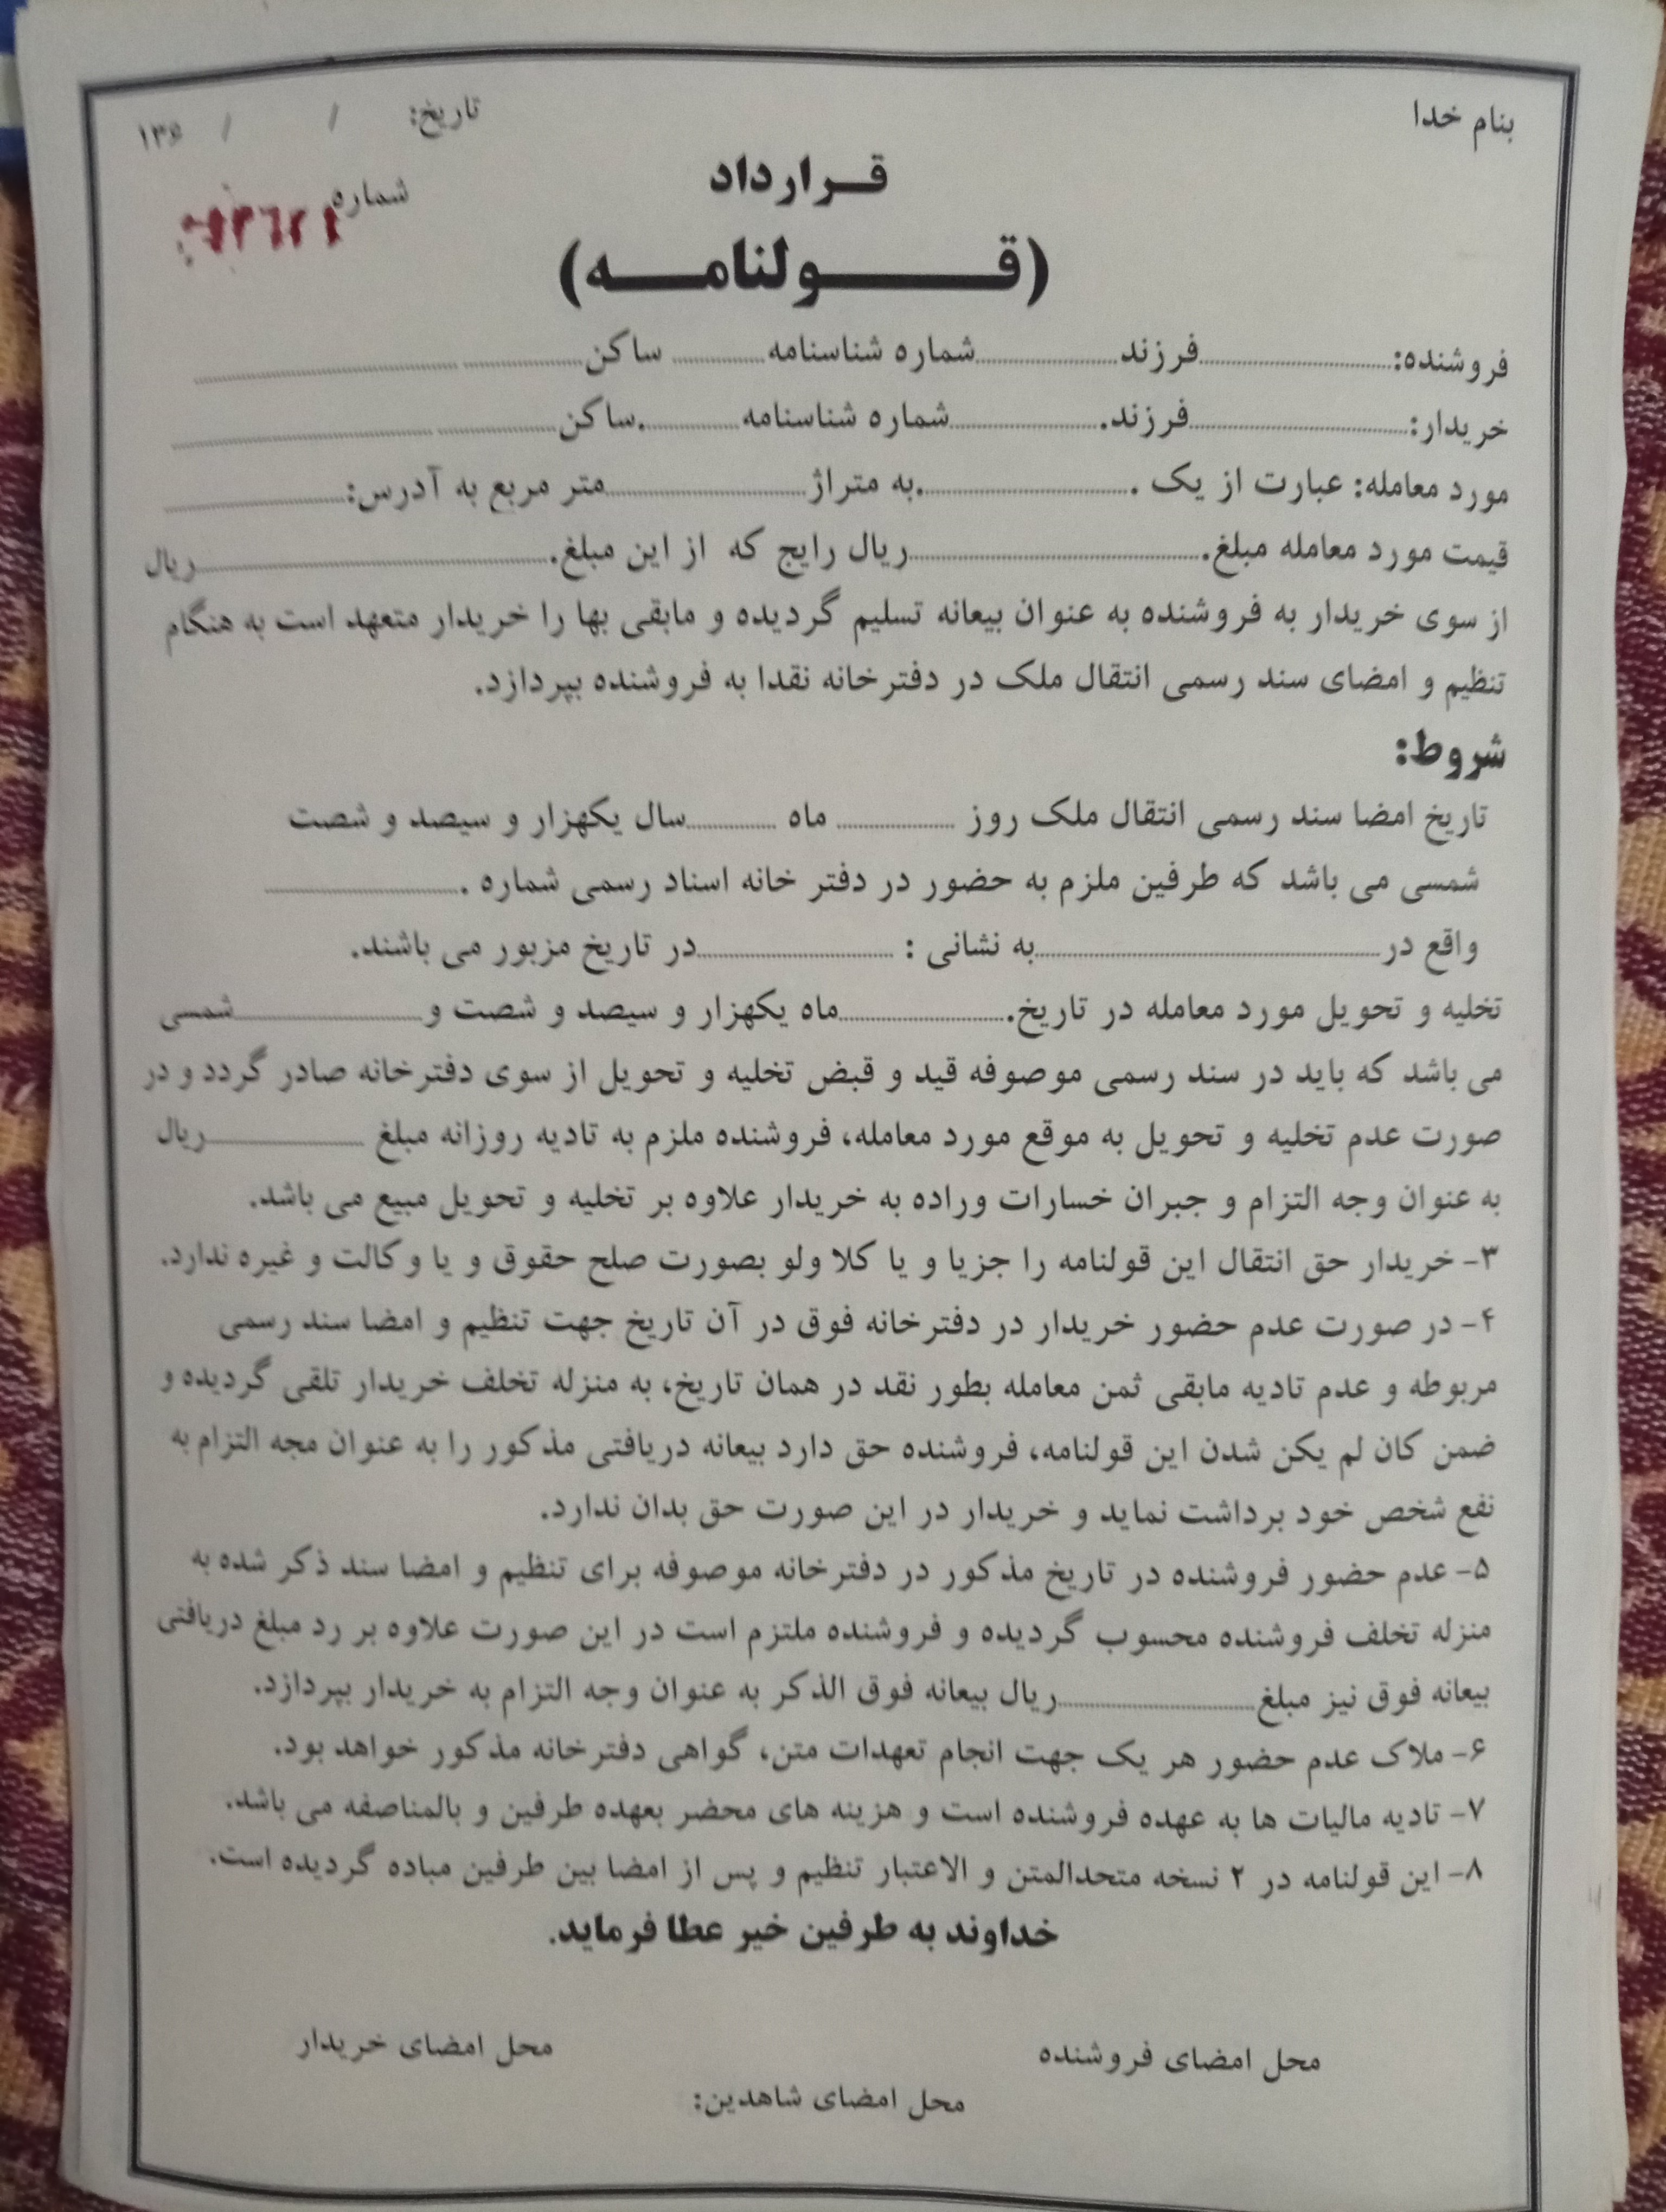 بنام خدا
تاریخ: / / ۱۳۶
شماره
قــرارداد
(قــــولنامــــه)
فروشنده:..........فرزند..........شماره شناسنامه.......... ساکن..........
خریدار:..........فرزند...........شماره شناسنامه...........ساکن..........
مورد معامله: عبارت از یک ...........به متراژ..........متر مربع به آدرس:..........
قیمت مورد معامله مبلغ...........ریال رایج که از این مبلغ...........ریال
از سوی خریدار به فروشنده به عنوان بیعانه تسلیم گردیده و مابقی بها را خریدار متعهد است به هنگام
تنظیم و امضای سند رسمی انتقال ملک در دفترخانه نقدا به فروشنده بپردازد.
شروط:
تاریخ امضا سند رسمی انتقال ملک روز .......... ماه ..........سال یکهزار و سیصد و شصت
شمسی می باشد که طرفین ملزم به حضور در دفتر خانه اسناد رسمی شماره ...........
واقع در..........به نشانی : ..........در تاریخ مزبور می باشند.
تخلیه و تحویل مورد معامله در تاریخ...........ماه یکهزار و سیصد و شصت و..........شمسی
می باشد که باید در سند رسمی موصوفه قید و قبض تخلیه و تحویل از سوی دفترخانه صادر گردد و در
صورت عدم تخلیه و تحویل به موقع مورد معامله، فروشنده ملزم به تادیه روزانه مبلغ ..........ریال
به عنوان وجه التزام و جبران خسارات وراده به خریدار علاوه بر تخلیه و تحویل مبیع می باشد.
۳- خریدار حق انتقال این قولنامه را جزیا و یا کلا ولو بصورت صلح حقوق و یا وکالت و غیره ندارد.
۴- در صورت عدم حضور خریدار در دفترخانه فوق در آن تاریخ جهت تنظیم و امضا سند رسمی
مربوطه و عدم تادیه مابقی ثمن معامله بطور نقد در همان تاریخ، به منزله تخلف خریدار تلقی گردیده و
ضمن کان لم یکن شدن این قولنامه، فروشنده حق دارد بیعانه دریافتی مذکور را به عنوان مجه التزام به
نفع شخص خود برداشت نماید و خریدار در این صورت حق بدان ندارد.
۵- عدم حضور فروشنده در تاریخ مذکور در دفترخانه موصوفه برای تنظیم و امضا سند ذکر شده به
منزله تخلف فروشنده محسوب گردیده و فروشنده ملتزم است در این صورت علاوه بر رد مبلغ دریافتی
بیعانه فوق نیز مبلغ..........ریال بیعانه فوق الذکر به عنوان وجه التزام به خریدار بپردازد.
۶- ملاک عدم حضور هر یک جهت انجام تعهدات متن، گواهی دفترخانه مذکور خواهد بود.
۷- تادیه مالیات ها به عهده فروشنده است و هزینه های محضر بعهده طرفین و بالمناصفه می باشد.
۸- این قولنامه در ۲ نسخه متحدالمتن و الاعتبار تنظیم و پس از امضا بین طرفین مباده گردیده است.
خداوند به طرفین خیر عطا فرماید.
محل امضای فروشنده
محل امضای خریدار
محل امضای شاهدین: